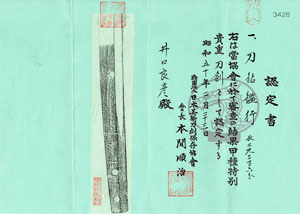 3428
認定書
一、刀 銘 盛行 長二尺三寸六分
右は當協會に於て審査の結果甲種特別
貴重刀剣として認定する
昭和五十年二月二十三日
財團法人日本美術刀剣保存協會
會長 本間順治
井口良彦殿